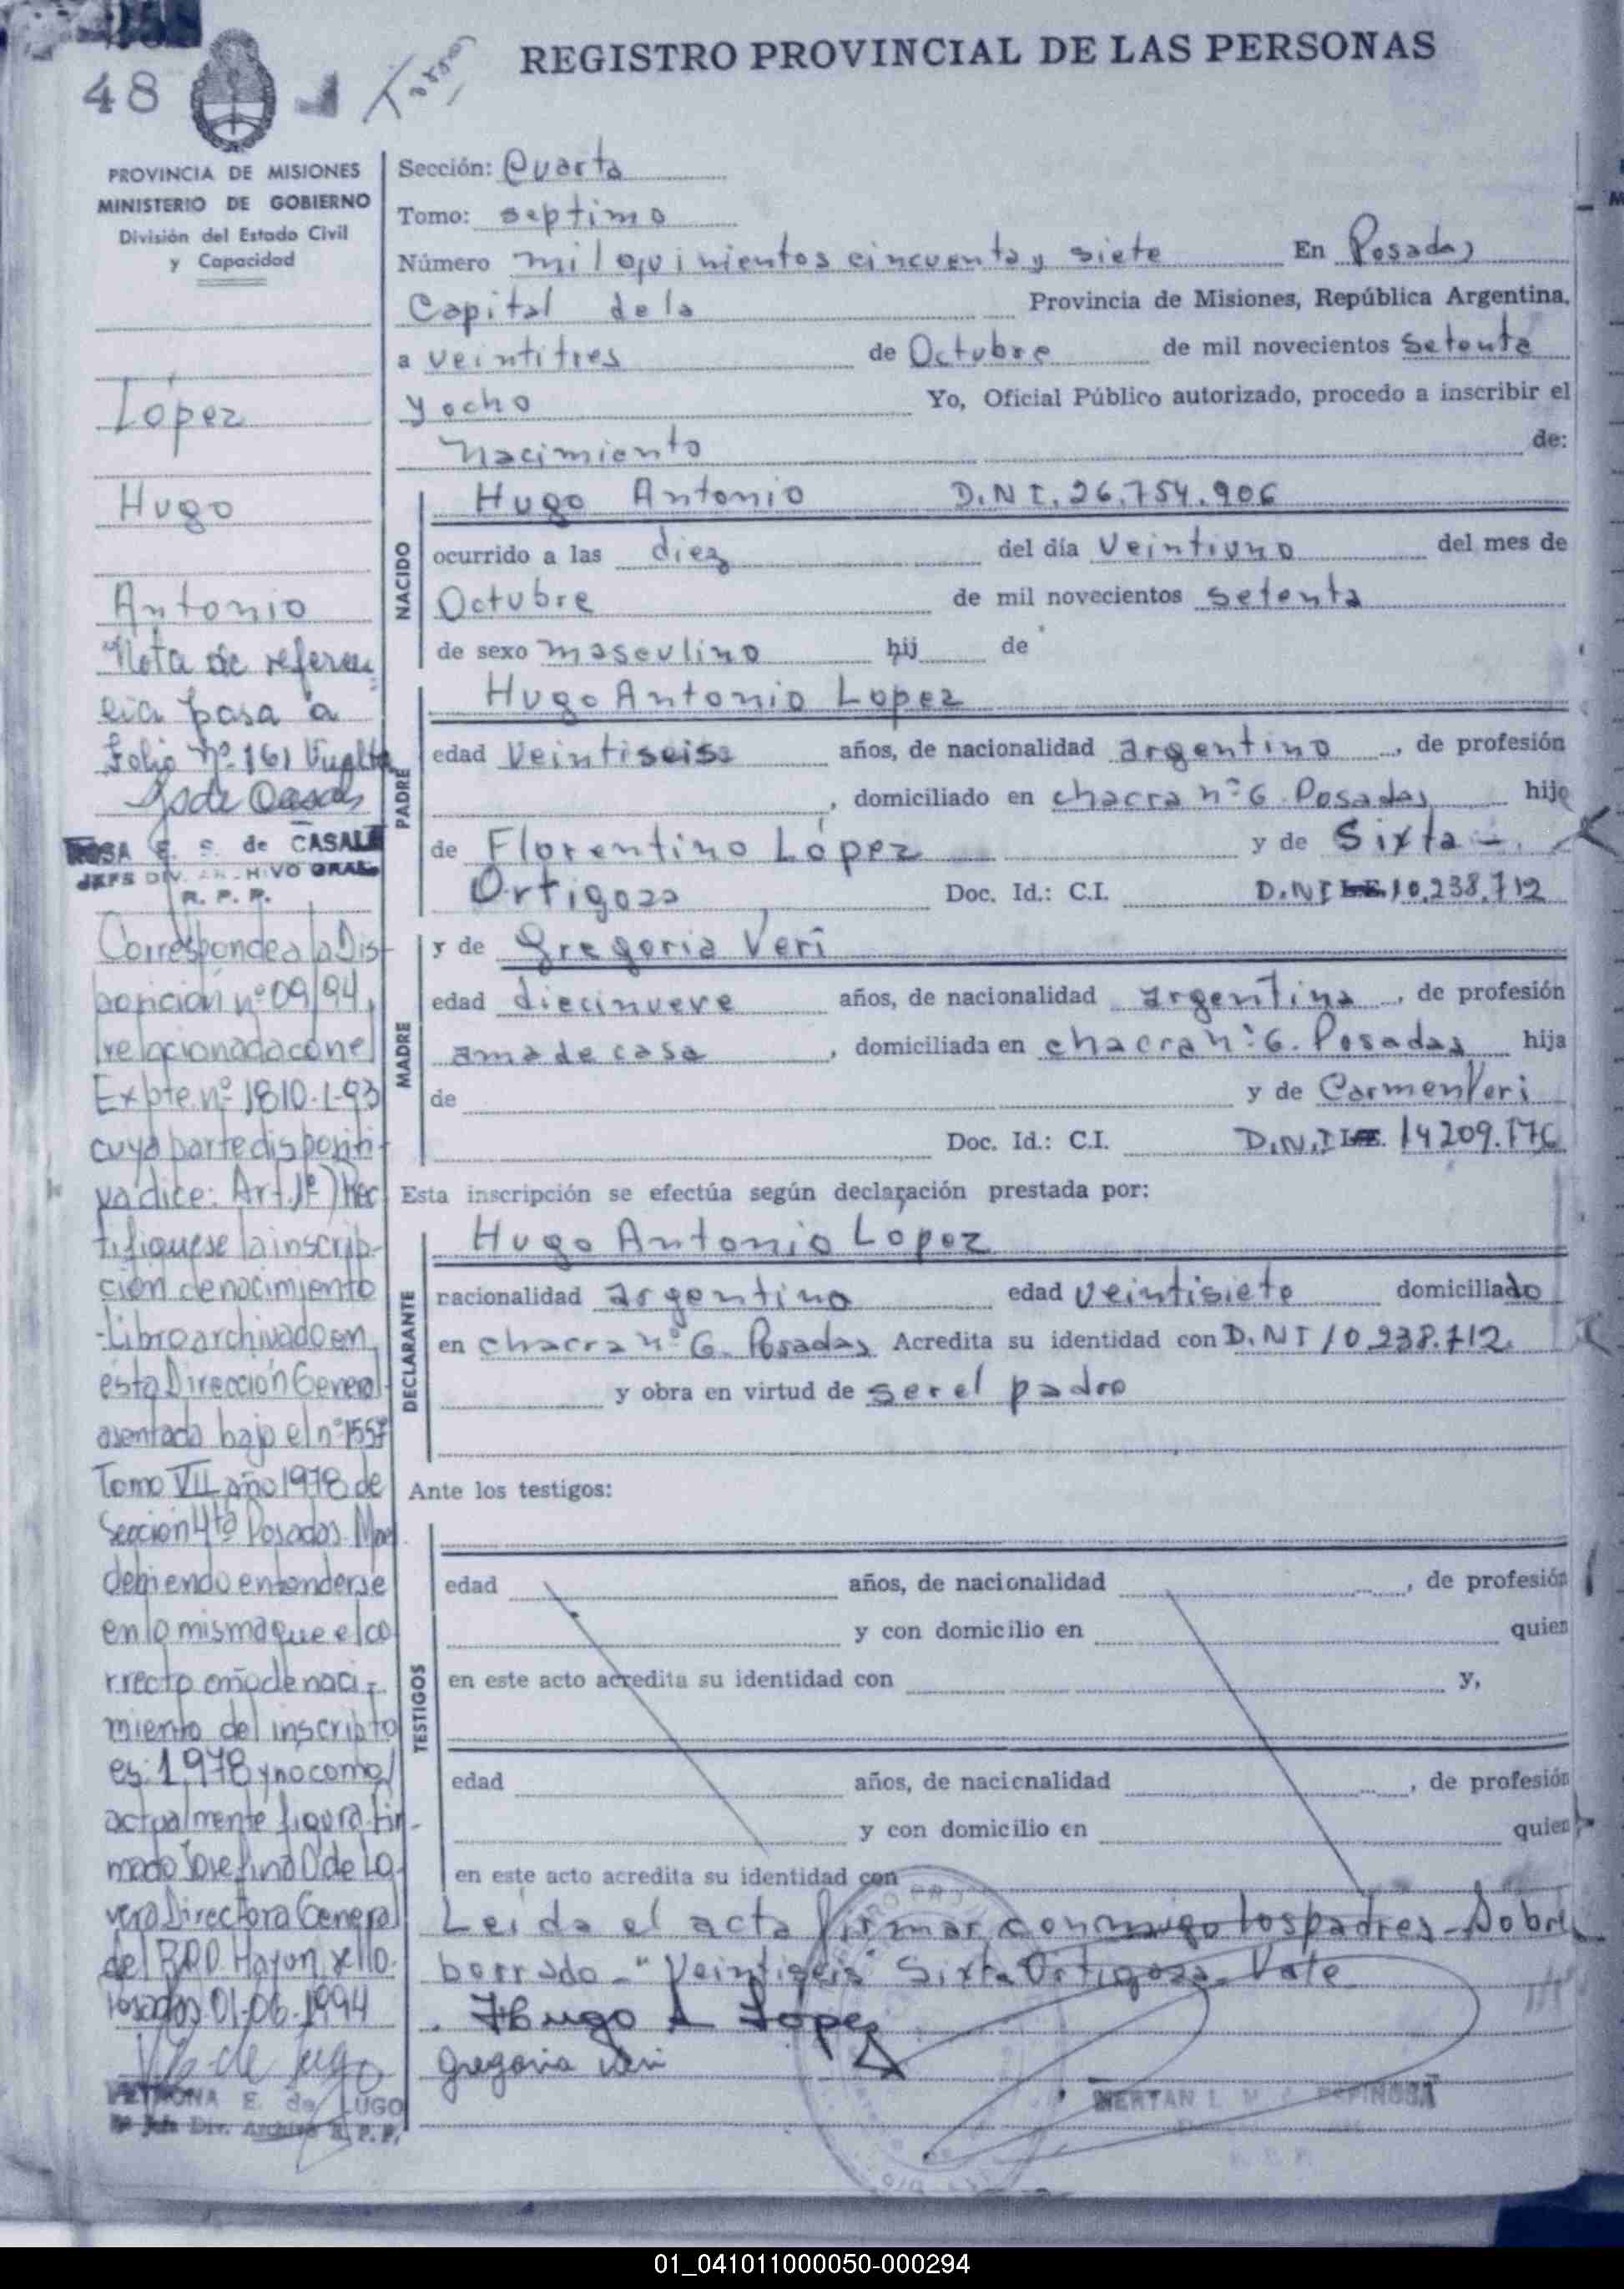 REGISTRO PROVINCIAL DE LAS PERSONAS
48
PROVINCIA DE MISIONES
MINISTERIO DE GOBIERNO
División del Estado Civil
y Capacidad
López
Hugo
Antonio
Nota de referen
cia pasa a
Folio Nº 161 Vuelta
ROSA E. S. de CASALE
JEFE DIV. ARCHIVO GRAL.
R. P. P.
Corresponde a la Dis-
posición nº 09/94,
relacionada con el
Expte. nº 1810-L-93
cuya parte dispositi-
va dice: Art. 1º) Rec
tifíquese la inscrip-
ción de nacimiento
-Libro archivado en
esta Dirección General
asentada bajo el nº 1557
Tomo VII año 1978 de
Sección 4ta Posadas. Mnes
debiendo entenderse
en la misma que el co
rrecto año de naci-
miento del inscripto
es: 1.978 y no como
actualmente figura. Fir-
mado Josefina O de Lo-
vera Directora General
del R.P.P. Hay un sello.
Posadas 01-06-1994
PETRONA E. de LUGO
Jefe Div. Archivo R. P. P.
Sección: Cuarta
Tomo: septimo
Número mil quinientos cincuenta y siete En Posadas
Capital de la Provincia de Misiones, República Argentina,
a veintitres de Octubre de mil novecientos setenta
y ocho Yo, Oficial Público autorizado, procedo a inscribir el
Nacimiento de:
NACIDO
Hugo Antonio D.N.I. 26.754.906
ocurrido a las diez del día veintiuno del mes de
Octubre de mil novecientos setenta
de sexo masculino hij de
PADRE
Hugo Antonio Lopez
edad veintiseis años, de nacionalidad argentino, de profesión
, domiciliado en chacra nº 6. Posadas hijo
de Florentino López y de Sixta
Ortigoza Doc. Id.: C.I. D.N.I. 10.238.712
MADRE
y de Gregoria Veri
edad diecinueve años, de nacionalidad argentina, de profesión
ama de casa, domiciliada en chacra nº 6. Posadas hija
de y de Carmen Veri
Doc. Id.: C.I. D.N.I. L.E. 14209.176
Esta inscripción se efectúa según declaración prestada por:
DECLARANTE
Hugo Antonio Lopez
nacionalidad argentino edad veintisiete domiciliado
en chacra nº 6. Posadas Acredita su identidad con D.N.I 10.238.712.
y obra en virtud de ser el padre
Ante los testigos:
TESTIGOS
edad años, de nacionalidad , de profesión
y con domicilio en quien
en este acto acredita su identidad con y,
edad años, de nacionalidad , de profesión
y con domicilio en quien
en este acto acredita su identidad con
Leida el acta firman conmigo los padres - Sobre
borrado - "Veintiseis" Sixta Ortigoza - Vale
Hugo A Lopez
Gregoria Veri
01_041011000050-000294